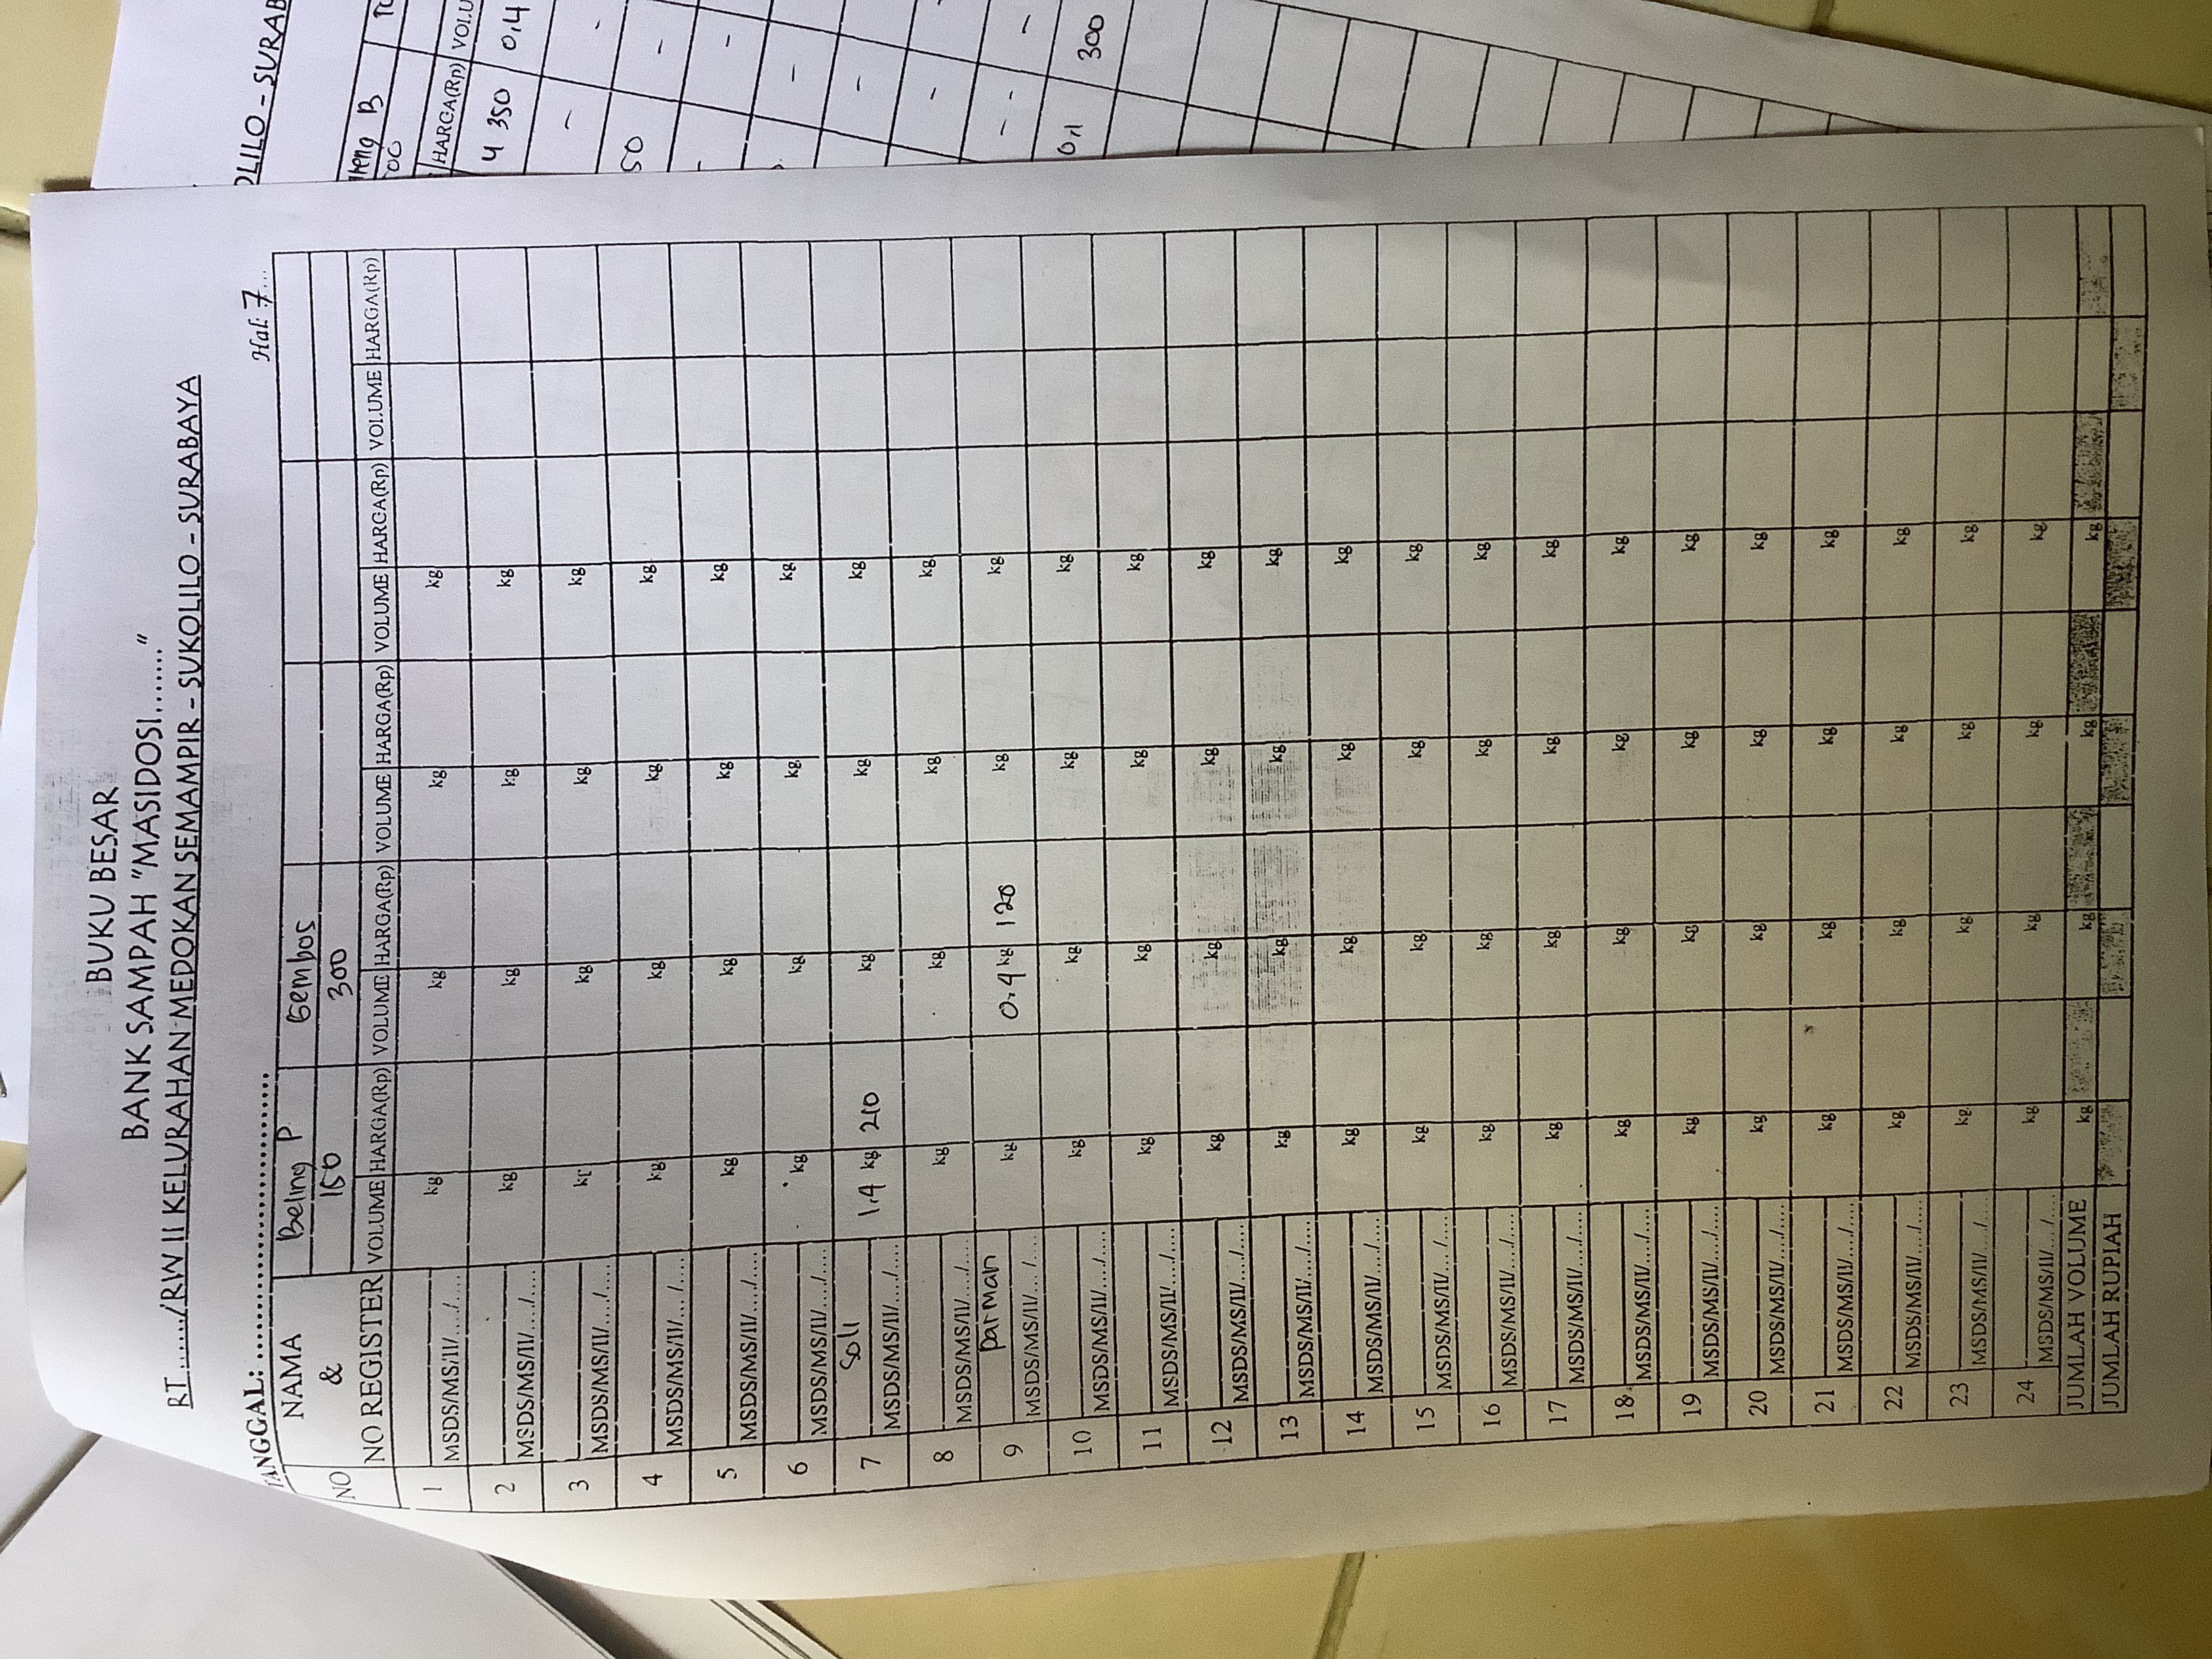 BUKU BESAR
BANK SAMPAH "MASIDOSI......."
RT ....../RW II KELURAHAN MEDOKAN SEMAMPIR - SUKOLILO - SURABAYA
TANGGAL: ..............................
Hal: 7...
NO NAMA & NO REGISTER Beling P Gembos
150 300
VOLUME HARGA(Rp) VOLUME HARGA(Rp) VOLUME HARGA(Rp) VOLUME HARGA(Rp) VOLUME HARGA(Rp)
1 MSDS/MS/II/..../.... kg kg kg kg
2 MSDS/MS/II/..../.... kg kg kg kg
3 MSDS/MS/II/..../.... kg kg kg kg
4 MSDS/MS/II/... /.... kg kg kg kg
5 MSDS/MS/II/..../.... kg kg kg kg
6 MSDS/MS/II/..../.... kg kg kg kg
7 Soli
MSDS/MS/II/..../.... 1.4 kg 210 kg kg kg
8 MSDS/MS/II/..../.... kg kg kg kg
9 Parman
MSDS/MS/II/... /.... kg 0.4 kg 120 kg kg
10 MSDS/MS/II/..../.... kg kg kg kg
11 MSDS/MS/II/..../.... kg kg kg kg
12 MSDS/MS/II/..../.... kg kg kg kg
13 MSDS/MS/II/..../.... kg kg kg kg
14 MSDS/MS/II/..../.... kg kg kg kg
15 MSDS/MS/II/... /.... kg kg kg kg
16 MSDS/MS/II/..../.... kg kg kg kg
17 MSDS/MS/II/..../.... kg kg kg kg
18 MSDS/MS/II/..../.... kg kg kg kg
19 MSDS/MS/II/..../.... kg kg kg kg
20 MSDS/MS/II/..../.... kg kg kg kg
21 MSDS/MS/II/..../.... kg kg kg kg
22 MSDS/MS/II/..../.... kg kg kg kg
23 MSDS/MS/II/..../.... kg kg kg kg
24 MSDS/MS/II/..../.... kg kg kg kg
JUMLAH VOLUME kg kg kg kg
JUMLAH RUPIAH
OLILO - SURAB
B
HARGA(Rp) VOLU
4 350 0,4
- -
50 -
- -
-
-
-
- - -
0,1 300